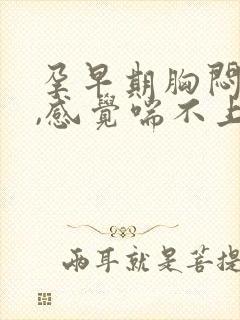 孕早期胸悶
,感覺喘不上
兩耳就是菩提